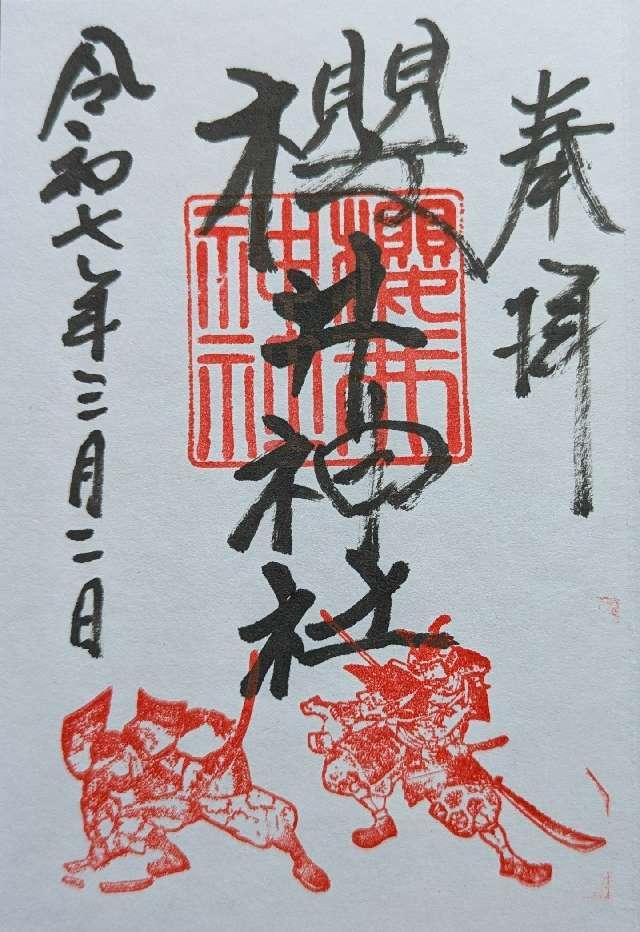 奉拝
櫻井神社
櫻井
神社
令和七年三月二日